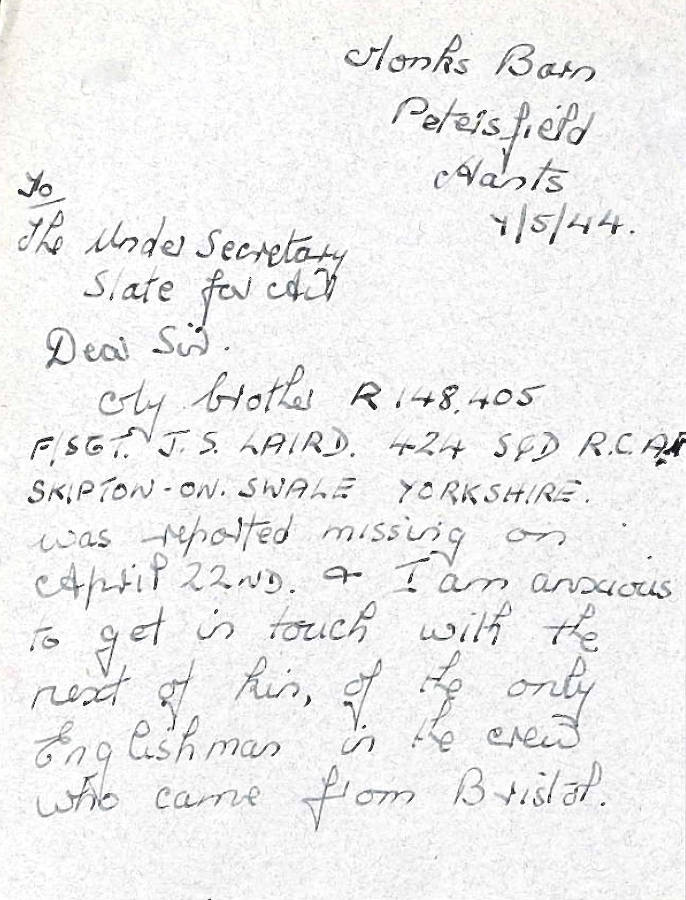 Monks Barn
Petersfield
Hants
4/5/44.
To
The Under Secretary
State for Air
Dear Sir.
My brother R148,405
F/SGT. J.S. LAIRD. 424 SQD R.C.AF
SKIPTON-ON. SWALE YORKSHIRE.
was reported missing on
April 22ND. & I am anxious
to get in touch with the
next of kin, of the only
Englishman in the crew
who came from Bristol.